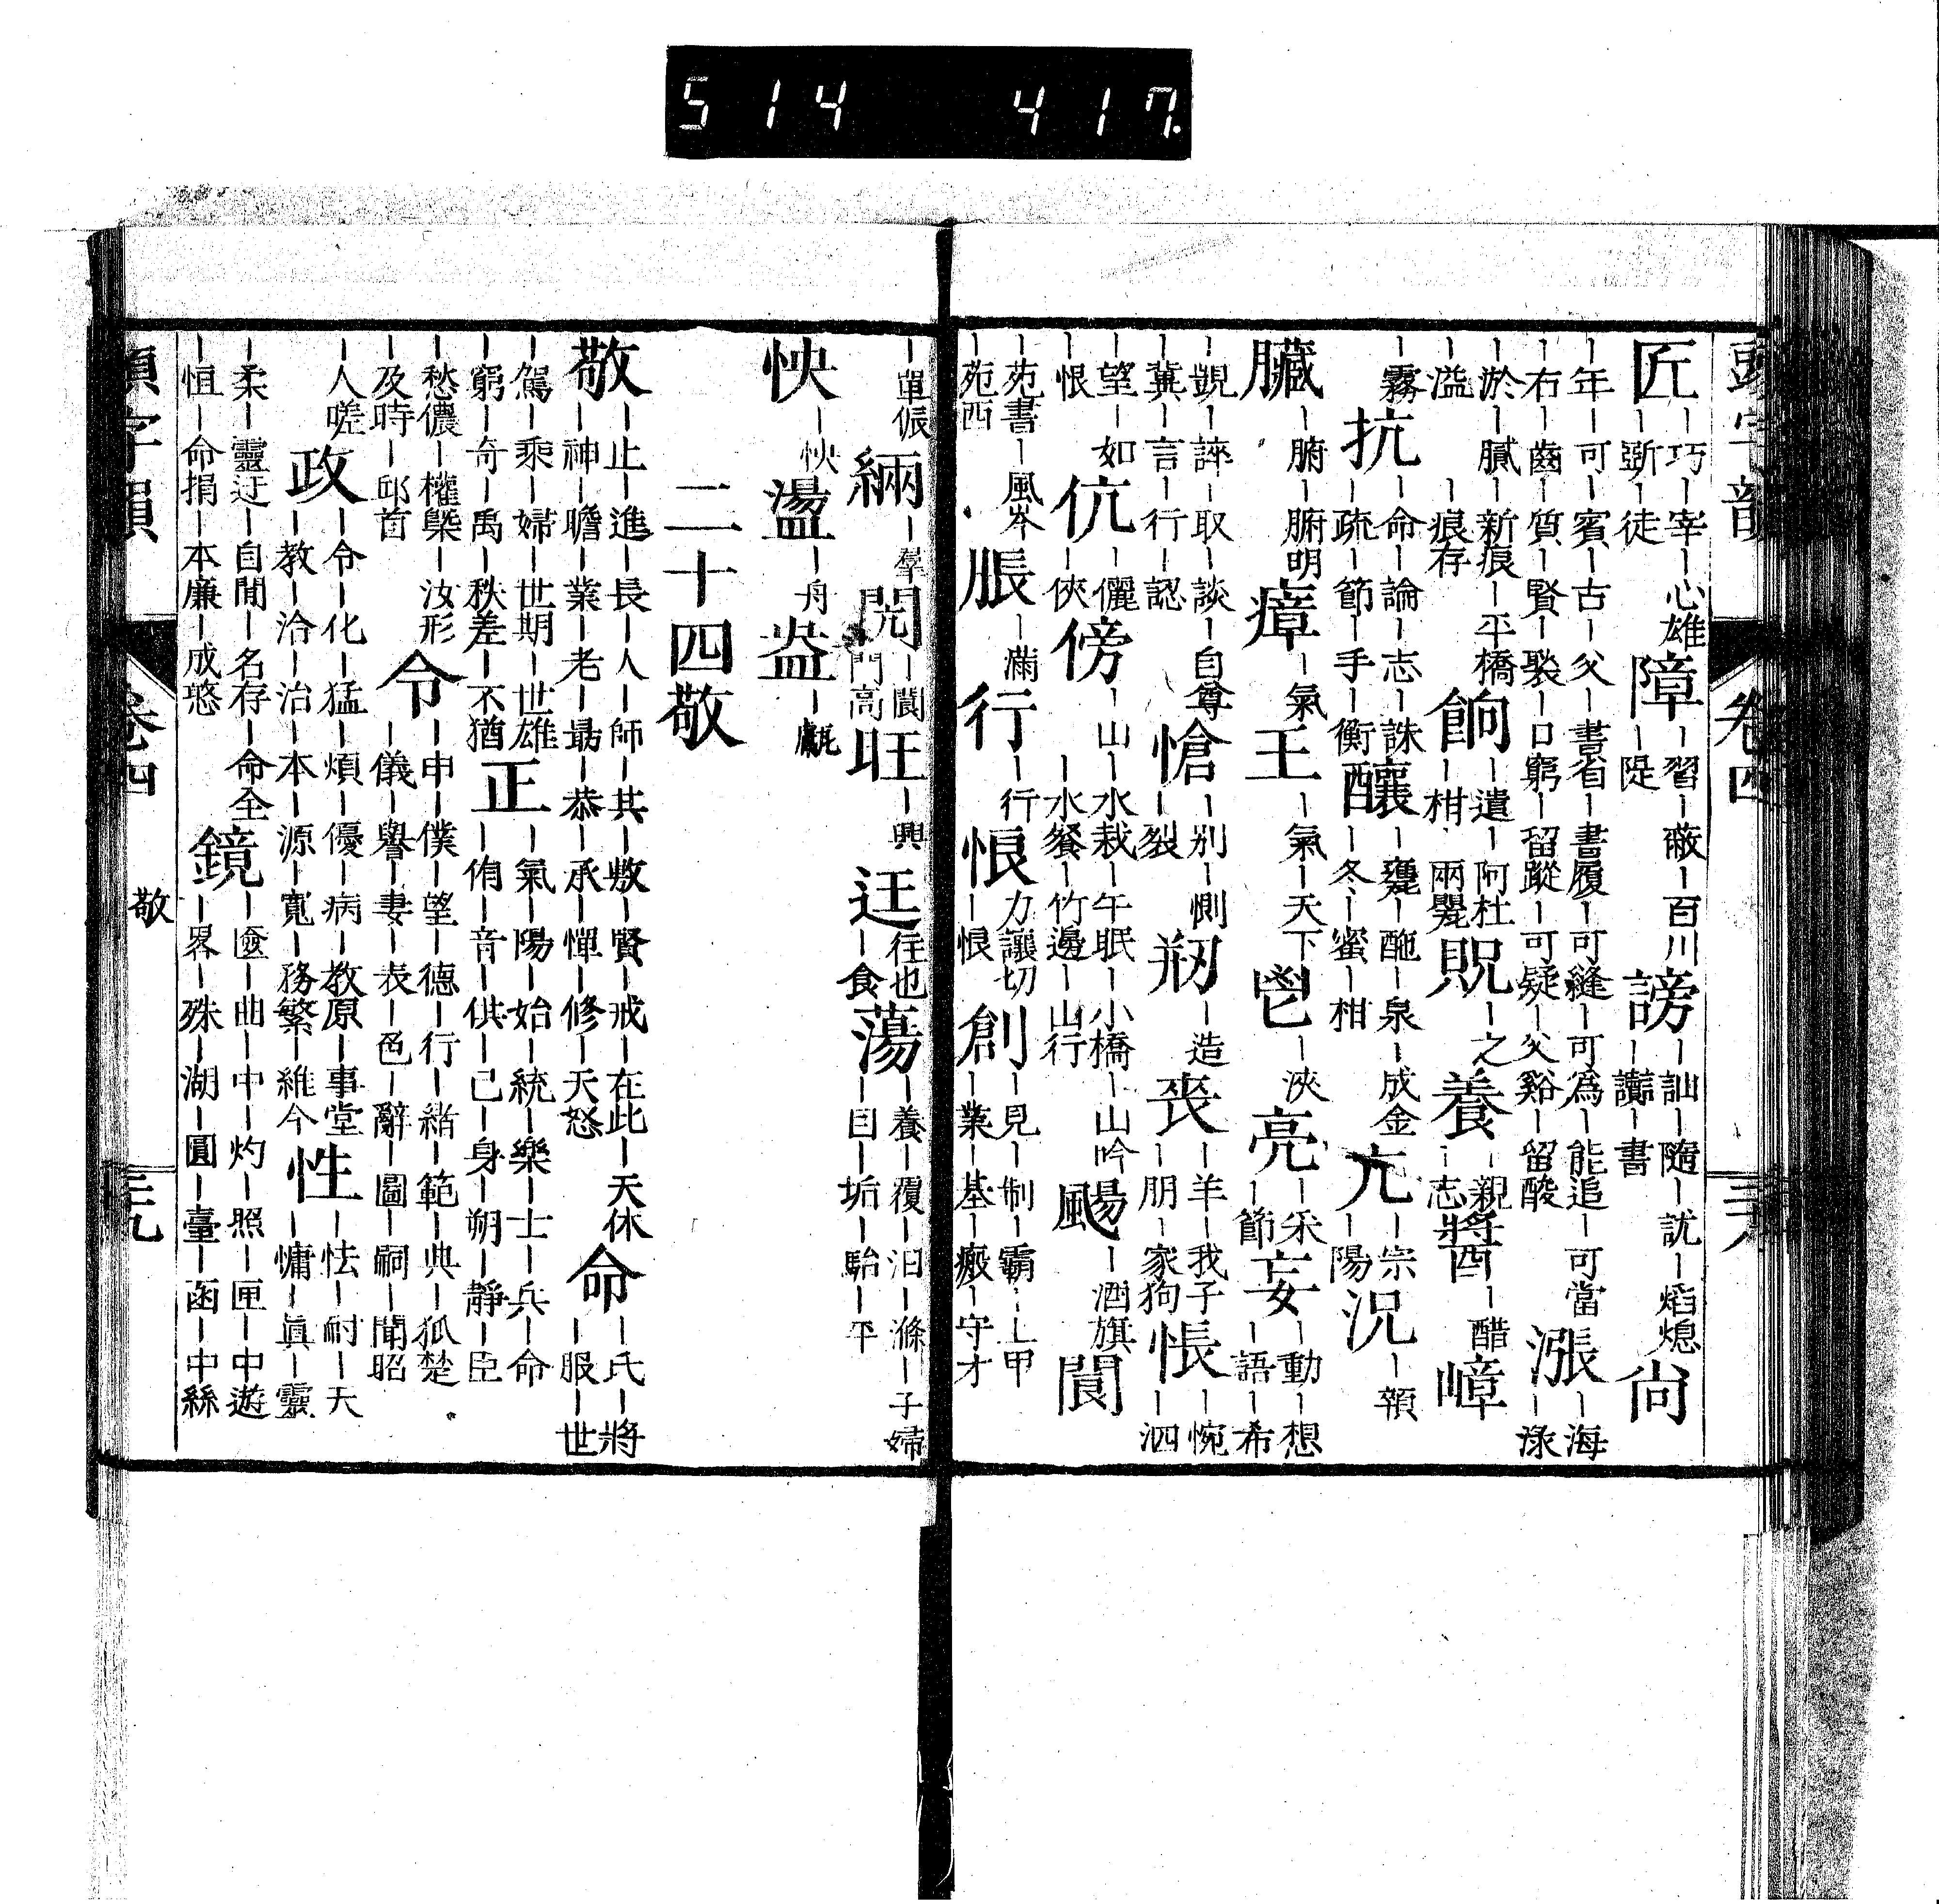 514 417.
頭字韻 卷四 三八
匠｜巧｜宰｜心雄｜斲｜徒 障｜習｜蔽｜百川｜隄 謗｜訕｜隨｜訧｜焰熄｜讟｜書 尙
｜年｜可｜賓｜古｜父｜書省｜書履｜可縫｜可為｜能追｜可當｜右｜齒｜質｜賢｜褧｜口窮｜留蹤｜可疑｜父谿｜留酸 漲｜海｜淥
｜淤｜膩｜新痕｜平橋｜溢｜痕存 餉｜遺｜阿杜｜柑｜兩甖 貺｜之 養｜親｜志 醬｜醋 嶂
｜霧 抗｜命｜論｜志｜誅｜疏｜節｜手｜衡 釀｜甕｜酏｜泉｜成金｜冬｜蜜｜柑 亢｜宗｜陽 況｜頟
臟｜腑｜腑明 瘴｜氣 王｜氣｜天下 鬯｜浹 亮｜采｜節 妄｜動｜想｜語｜希
｜覬｜誶｜取｜談｜自尊｜冀｜言｜行｜認 愴｜別｜惻｜裂 剏｜造 喪｜羊｜我子｜朋｜家狗 悵｜惋｜泗
｜望｜如｜恨 伉｜儷｜俠 傍｜山｜水栽｜午眠｜小橋｜山吟｜水餐｜竹邊｜山行 颺｜酒旗 閬
｜苑書｜風岑｜苑西 脹｜滿 行｜行 悢力讓切｜悢 創｜見｜制｜霸｜上甲｜業｜基｜瘢｜守才
｜單侲 緉｜羣 閌｜閬門高 旺｜興 迋往也｜食 蕩｜養｜覆｜汨｜滌｜子婦｜日｜垢｜駘｜平
怏｜怏 盪｜舟 盎｜甂
二十四敬
敬｜止｜進｜長｜人｜師｜其｜敷｜賢｜戒｜在此｜天休｜神｜瞻｜業｜老｜最｜恭｜承｜憚｜修｜天怒 命｜氏｜將｜服｜世
｜駕｜乘｜婦｜世期｜世雄｜窮｜奇｜禹｜秩差｜不猶 正｜氣｜陽｜始｜統｜樂｜士｜兵｜命｜侑｜音｜供｜己｜身｜朔｜靜｜臣
｜愁儂｜權㮣｜汝形｜及時｜邱首 令｜申｜僕｜望｜德｜行｜緒｜範｜典｜狐楚｜儀｜譽｜妻｜表｜色｜辭｜圖｜嗣｜聞昭
｜人嗟 政｜令｜化｜猛｜煩｜優｜病｜教原｜事堂｜教｜洽｜治｜本｜源｜寬｜務繁｜維今 性｜怯｜耐｜天｜慵｜眞｜靈
｜柔｜靈迂｜自閒｜名存｜命全｜恒｜命捐｜本廉｜成慦 鏡｜匳｜曲｜中｜灼｜照｜匣｜中遊｜畧｜殊｜湖｜圓｜臺｜函｜中絲
頭字韻 卷四 敬 三九